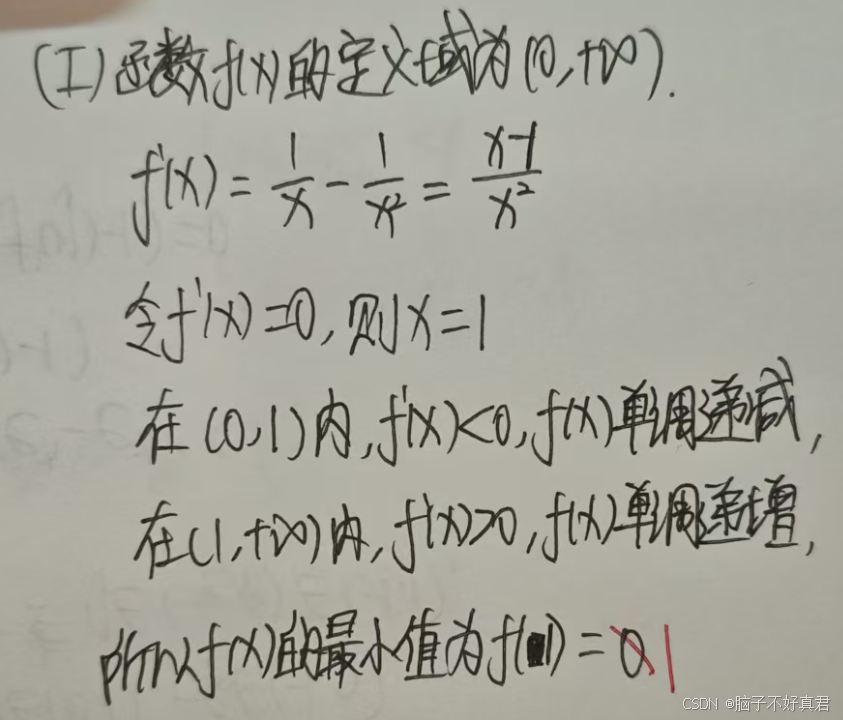 (I)函数f(x)的定义域为(0,+∞).
f'(x)=1/x-1/x²=x-1/x²
令f'(x)=0,则x=1
在(0,1)内,f'(x)<0,f(x)单调递减,
在(1,+∞)内,f'(x)>0,f(x)单调递增,
所以f(x)的最小值为f(1)=0 1
CSDN @脑子不好真君